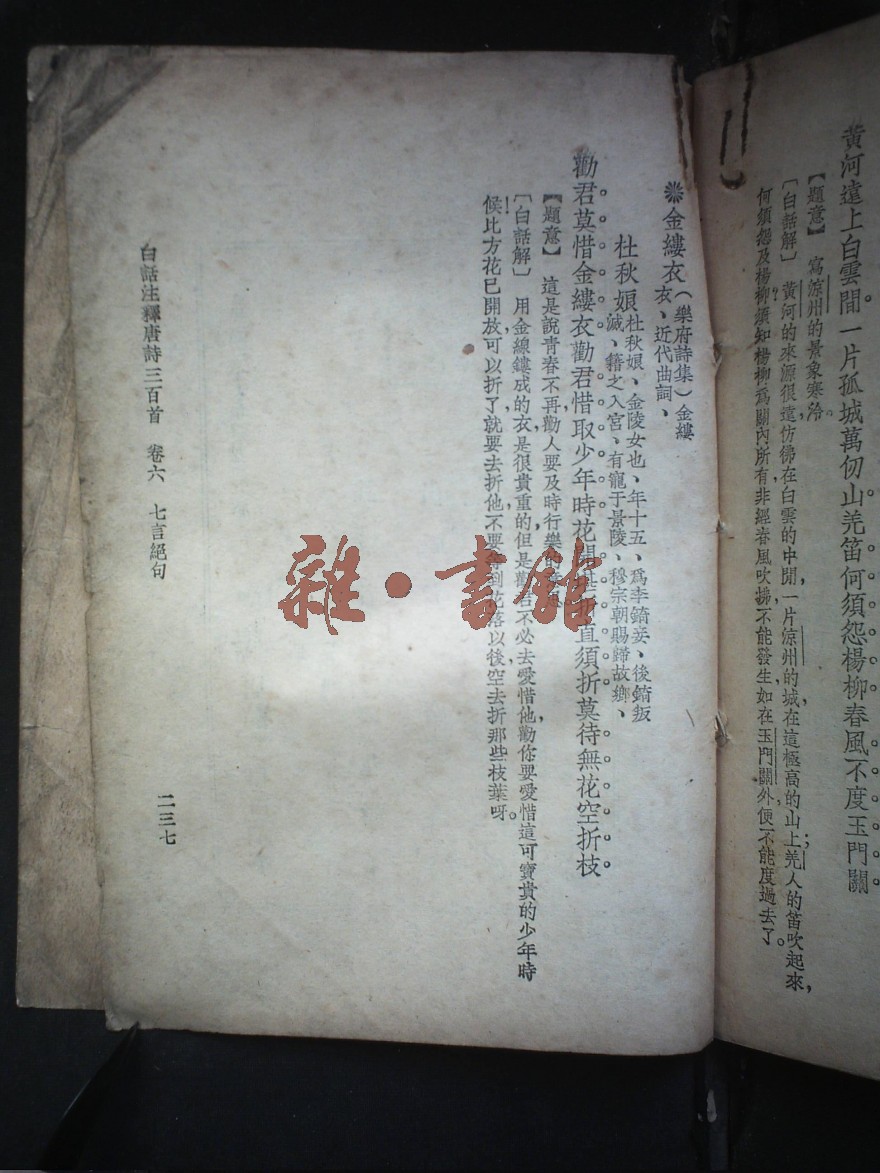 黃河遠上白雲間一片孤城萬仞山羌笛何須怨楊柳春風不度玉門關
【題意】寫涼州的景象寒冷。
〔白話解〕黃河的來源很遠仿彿在白雲的中間,一片涼州的城在這極高的山上;羌人的笛吹起來,
何須怨及楊柳?須知楊柳爲關內所有非經春風吹拂不能發生如在玉門關外便不能度過去了。
❋金縷衣(樂府詩集)金縷
衣、近代曲詞、
杜秋娘 杜秋娘、金陵女也、年十五、爲李錡妾、後錡叛
滅、籍之入宮、有寵于景陵、穆宗朝賜歸故鄉、
勸君莫惜金縷衣勸君惜取少年時花開堪折直須折莫待無花空折枝
【題意】這是說青春不再,勸人要及時行樂的
〔白話解〕用金線鏤成的衣是很貴重的,但是勸君不必去愛惜他,勸你要愛惜這可寶貴的少年時
候!比方花已開放可以折了,就要去折他,不要等到花落以後,空去折那些枝葉呀。
白話注釋唐詩三百首 卷六 七言絕句
二三七
雜·書館